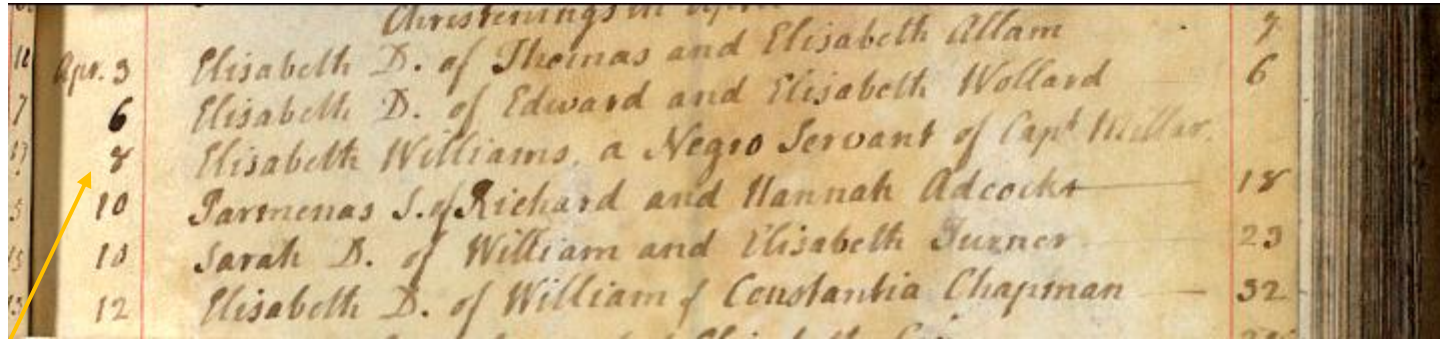 Christenings in Apr
Apr. 3 Elisabeth D. of Thomas and Elisabeth Allam 7
6 Elisabeth D. of Edward and Elisabeth Wollard 6
8 Elisabeth Williams, a Negro Servant of Capt Millar.
10 Parmenas S. of Richard and Hannah Adcocks 18
10 Sarah D. of William and Elisabeth Turner 23
12 Elisabeth D. of William & Constantia Chapman 32